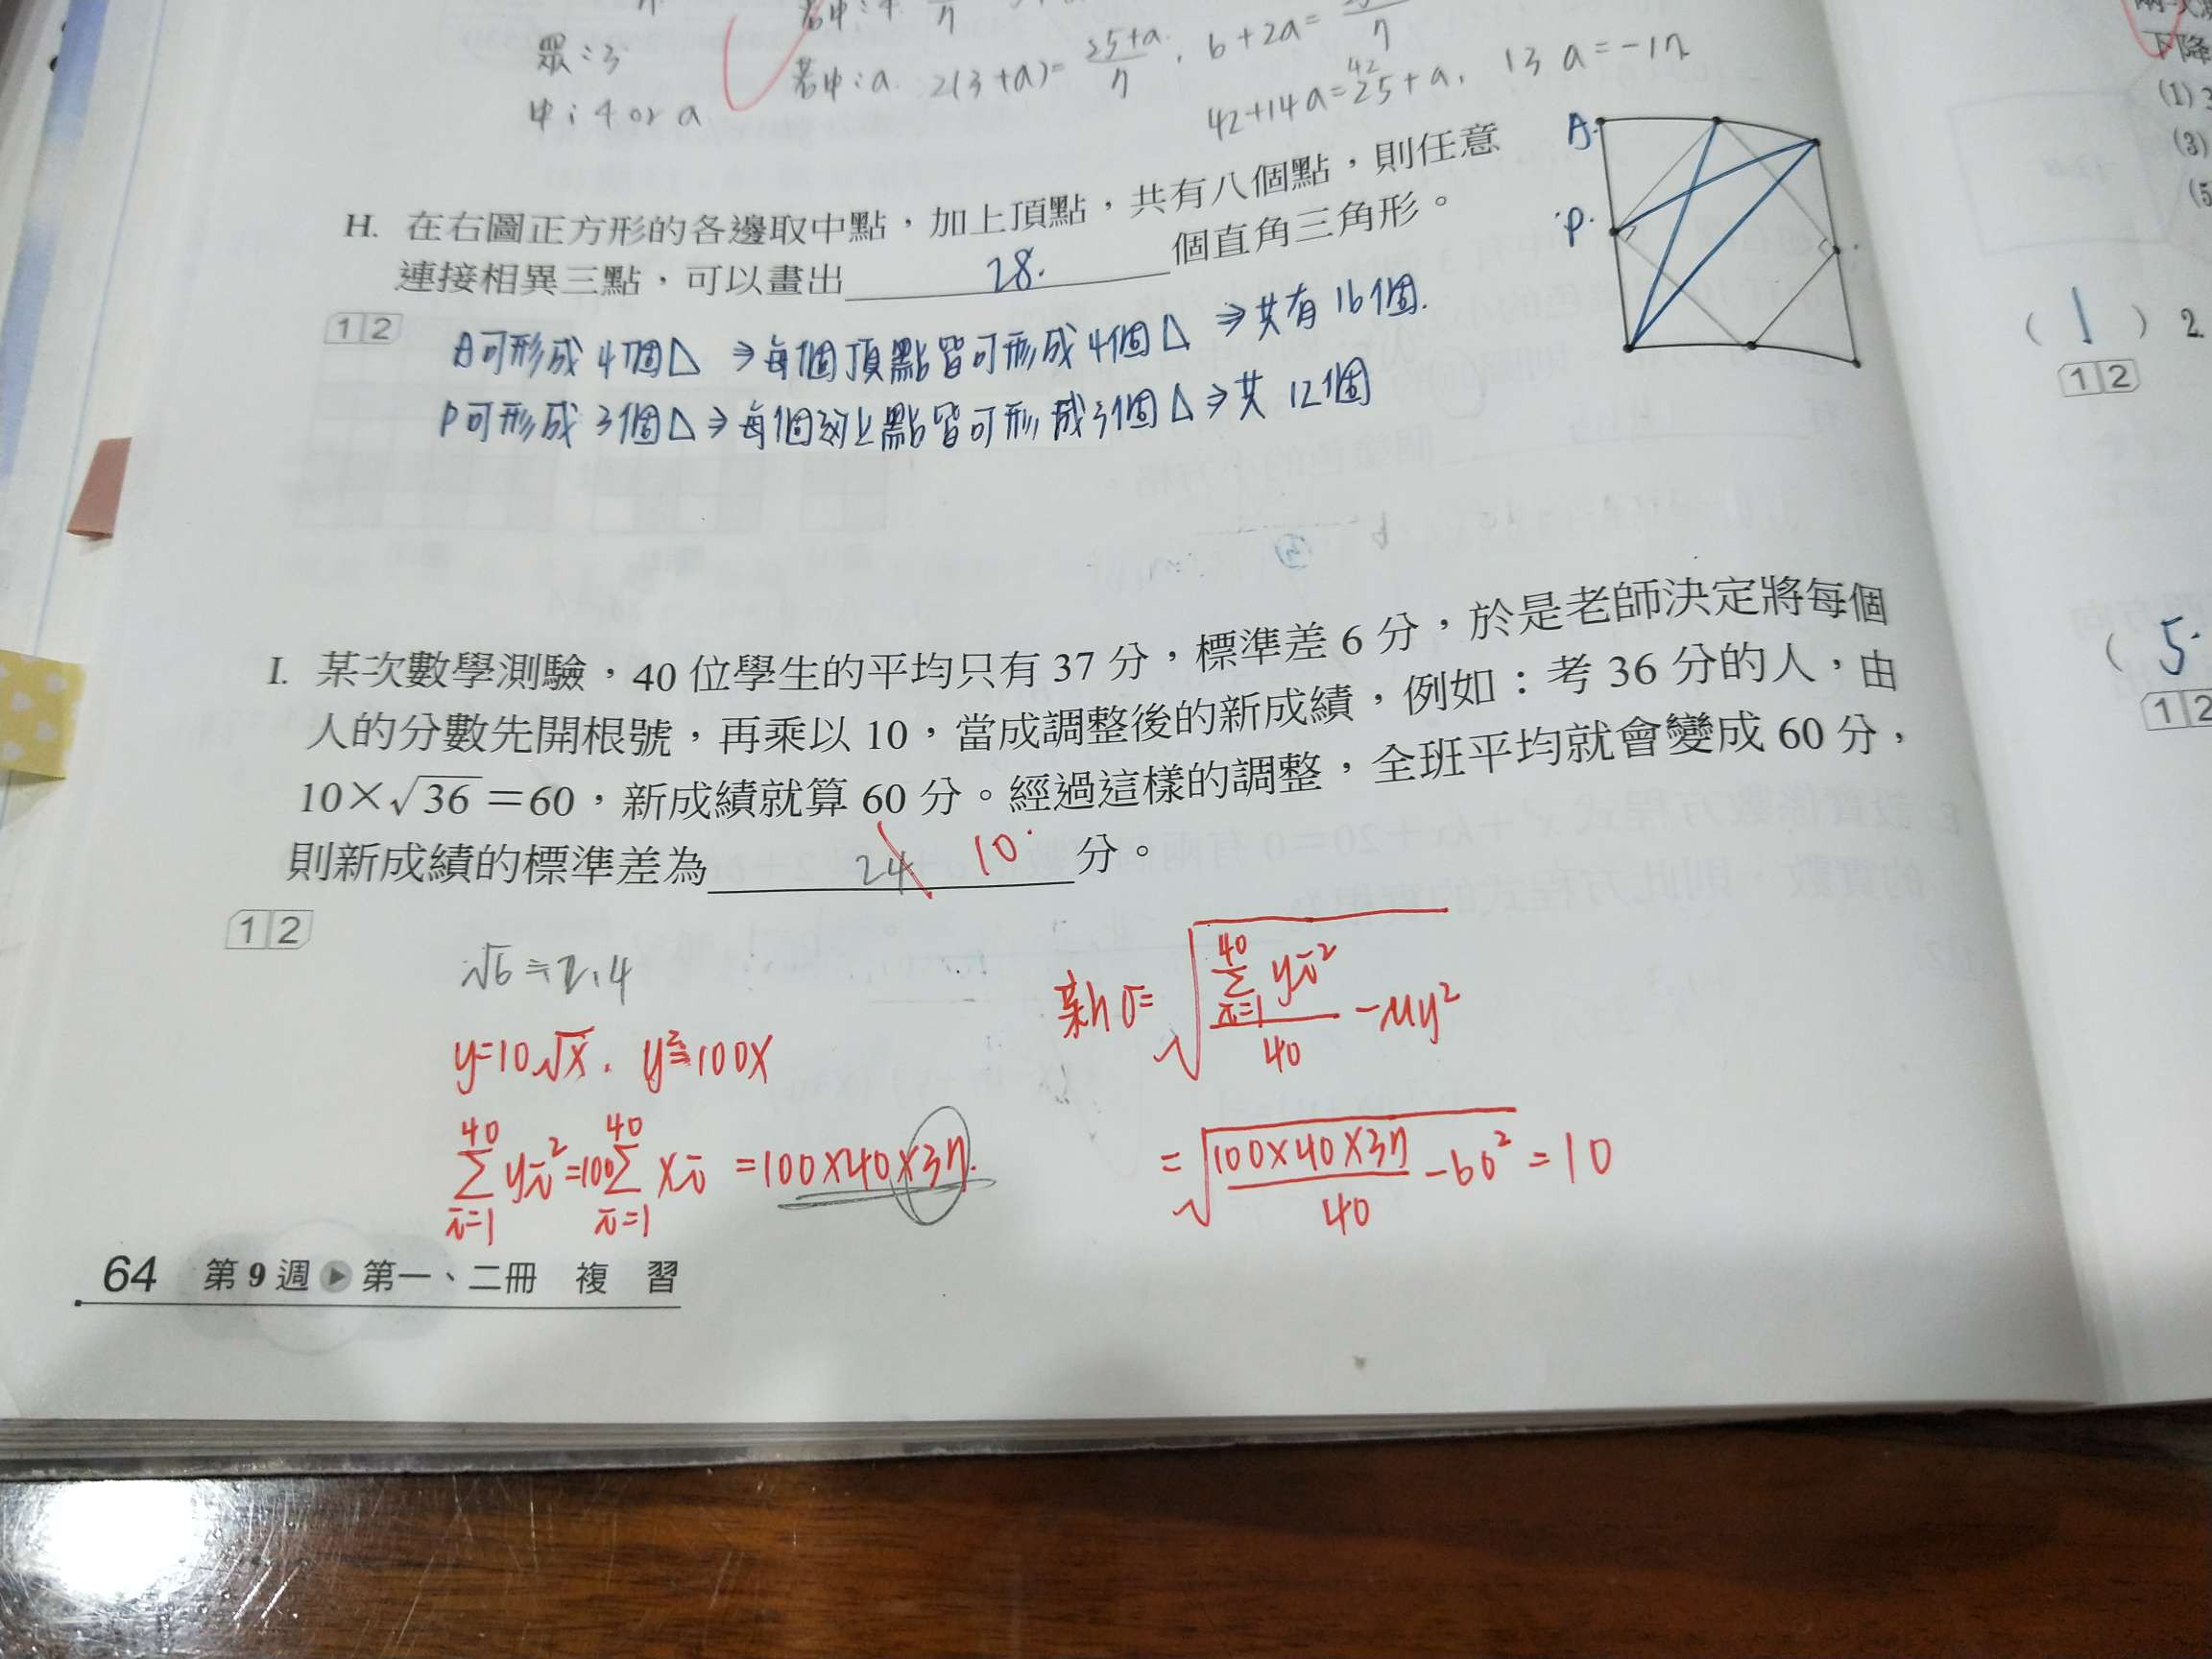 眾:3
中:4 or a
若中:a. 2(3+a)=25+a/7, 6+2a=
42+14a=25+a, 13a=-17
H. 在右圖正方形的各邊取中點,加上頂點,共有八個點,則任意
連接相異三點,可以畫出 28. 個直角三角形。
12
A可形成4個△ ⇒每個頂點皆可形成4個△ ⇒共有16個.
P可形成3個△⇒每個邊上點皆可形成3個△⇒共12個
A.
P.
I. 某次數學測驗,40 位學生的平均只有 37 分,標準差 6 分,於是老師決定將每個
人的分數先開根號,再乘以 10,當成調整後的新成績,例如:考 36 分的人,由
10×√36=60,新成績就算 60 分。經過這樣的調整,全班平均就會變成 60 分,
則新成績的標準差為 24 10 分。
12
√6≒2.4
y=10√x. y²=100x
40∑i=1 yi²=100 40∑i=1 xi =100×40×37.
新σ=√(40∑i=1 yi²/40 -μy²)
=√(100×40×37/40 -60²)=10
64 第9週 ▶ 第一、二冊 複 習
下降
(1)
(3)
(5
( 1 ) 2.
12
( 5.
12